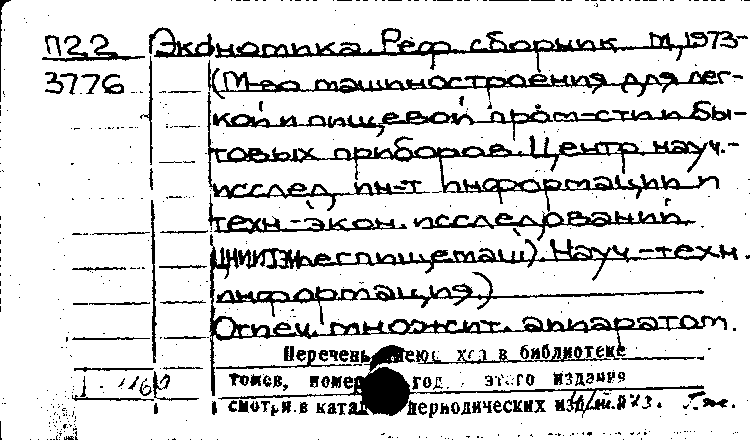 П22 Экономика. Реф. сборник. М., 1973-
3776 (М-во машиностроения для лег-
кой и пищевой пром-сти и бы-
товых приборов. Центр. науч.-
исслед. ин-т информации и
техн.-экон. исследований
ЦНИИТЭИлегпищемаш). Науч.-техн.
информация.)
Отпеч. множит. аппаратом.
Перечень имеющихся в библиотеке
томов, номеров, год этого издания
смотри в каталоге периодических изд